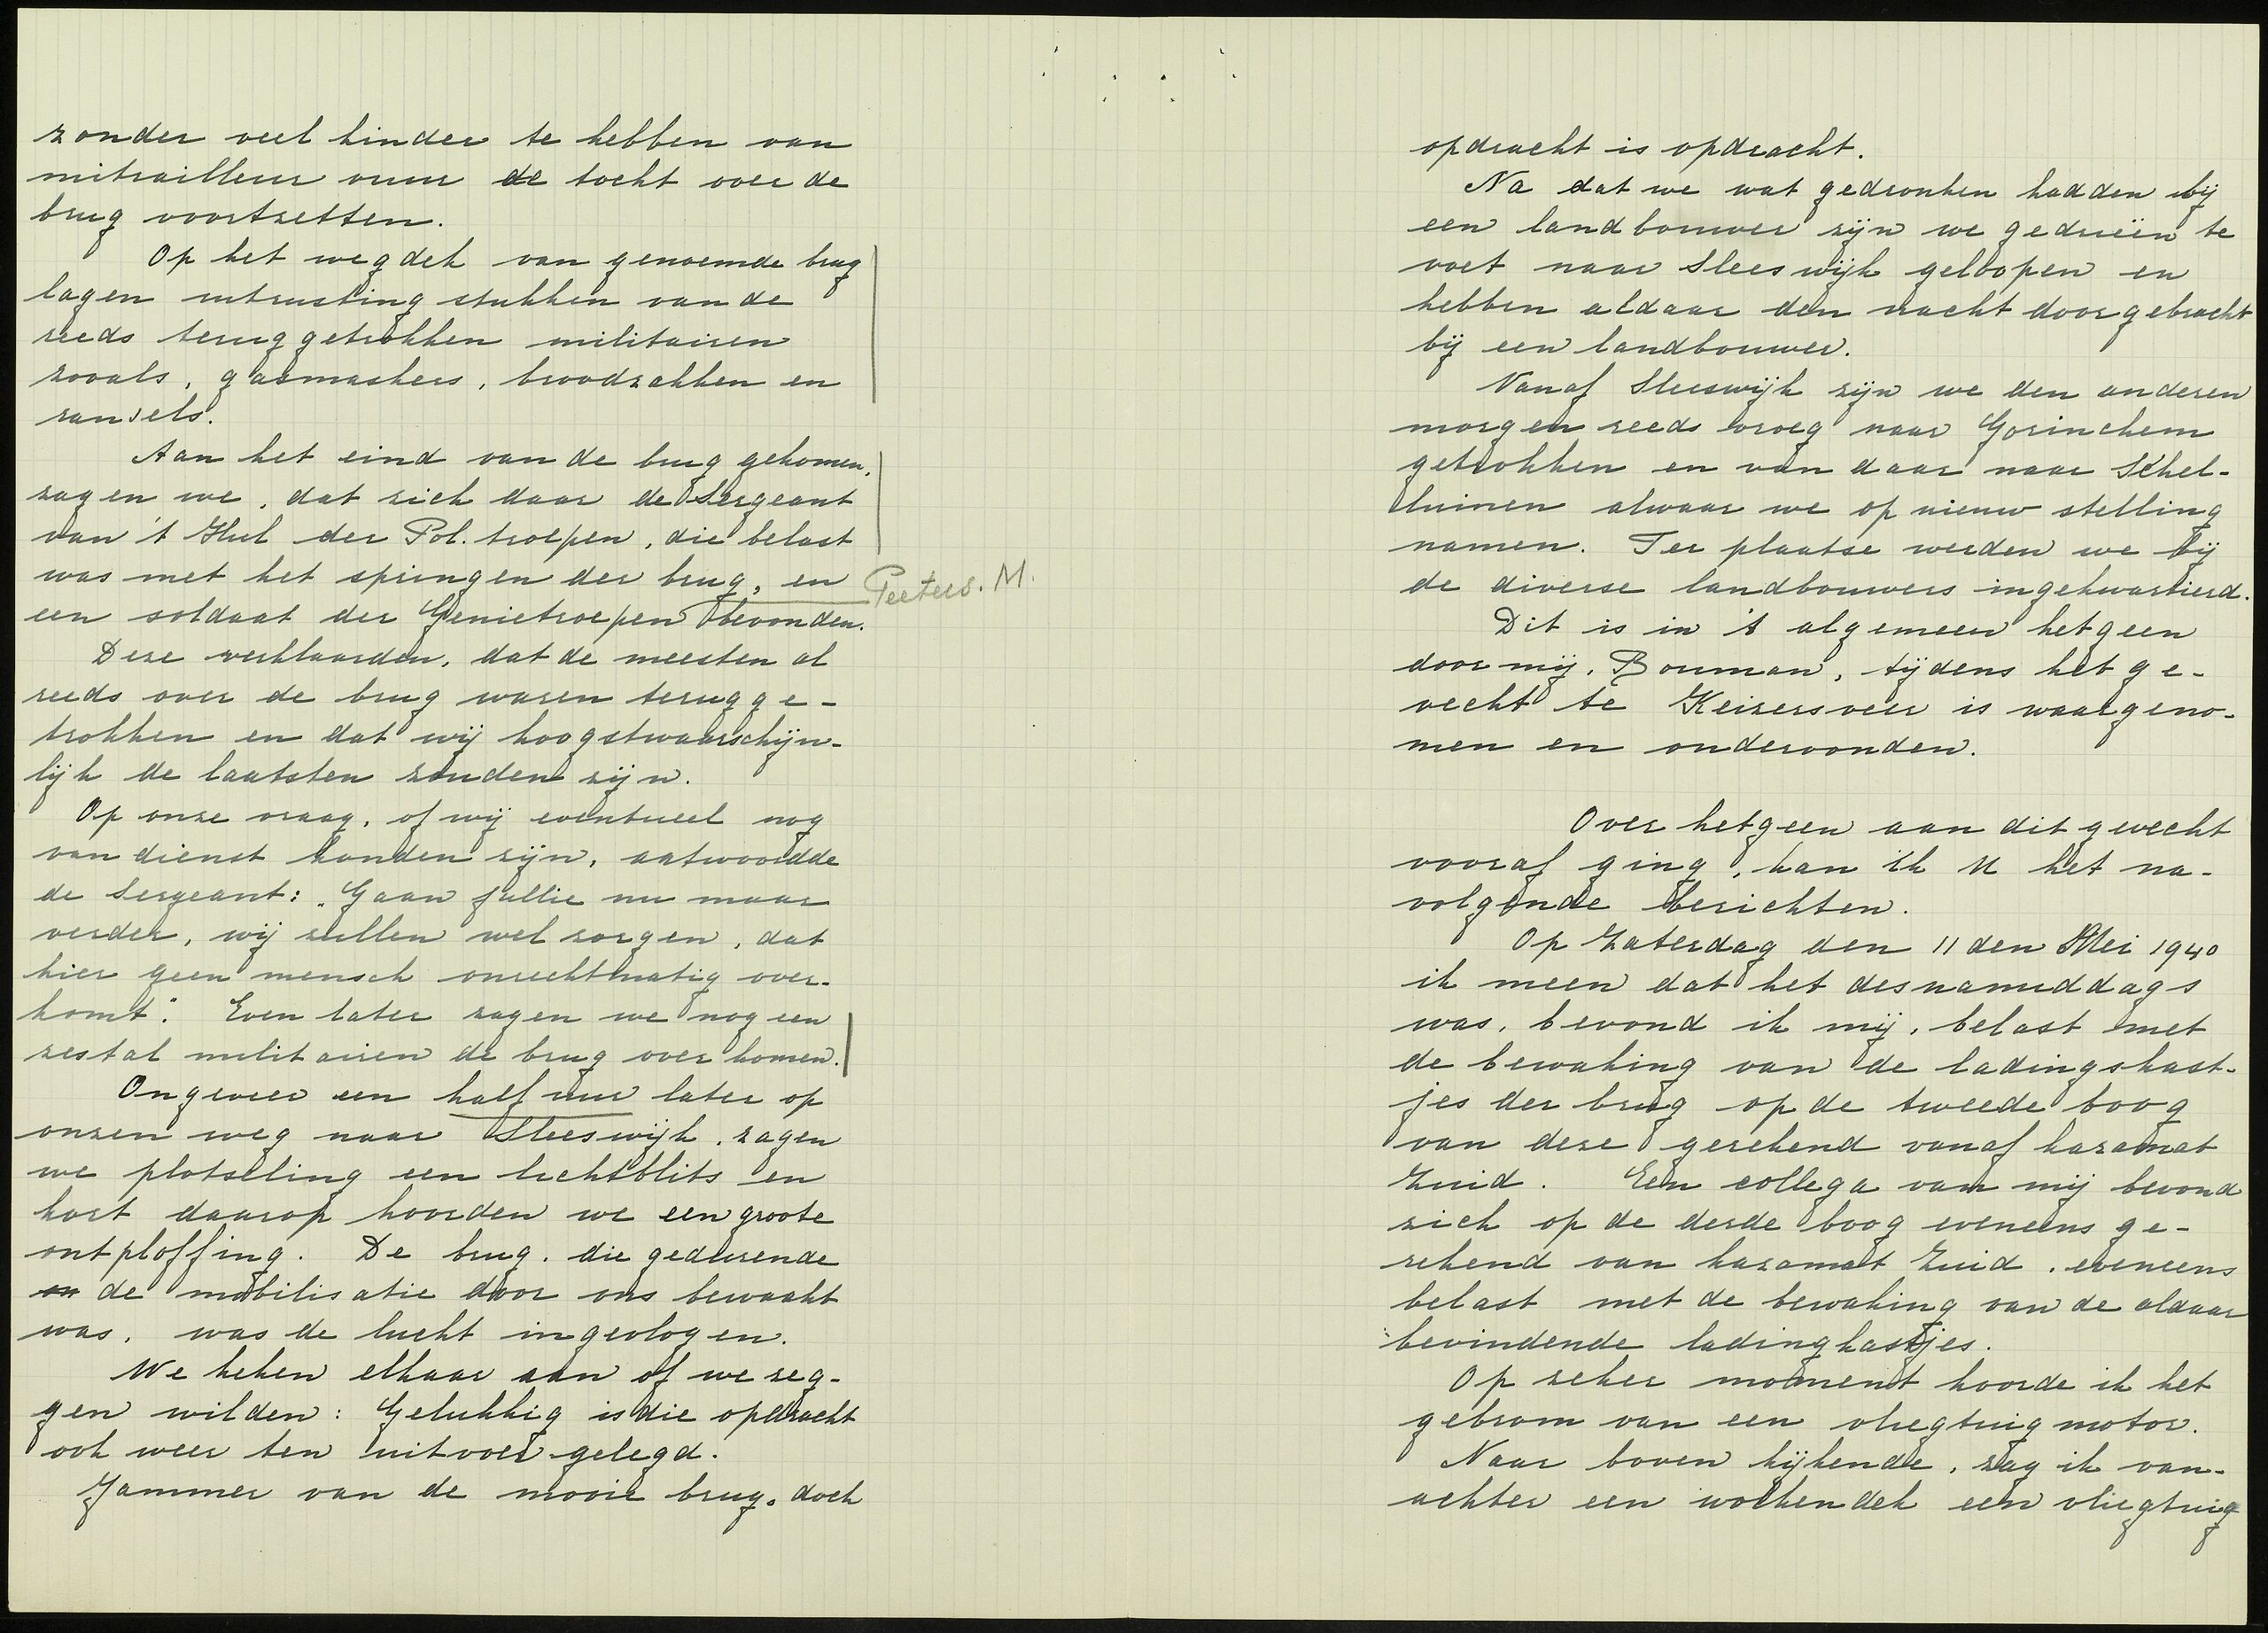 zonder veel hinder te hebben van
mitrailleur vuur de tocht over de
brug voortzetten.
Op het wegdek van genoemde brug
lagen uitrusting stukken van de
reeds teruggetrokken militairen
zooals, gasmaskers, broodzakken en
ransels.
Aan het eind van de brug gekomen,
zagen we, dat zich daar de Sergeant
van 't Hul der Pol. troepen, die belast
was met het springen der brug, en
Peeters. M.
een soldaat der Genietroepen bevonden.
Deze verklaarden, dat de meesten al
reeds over de brug waren terugge-
trokken en dat wij hoogstwaarschijn-
lijk de laatsten zouden zijn.
Op onze vraag, of wij eventueel nog
van dienst konden zijn, antwoordde
de Sergeant: „Gaan jullie nu maar
verder, wij zullen wel zorgen, dat
hier geen mensch onrechtmatig over-
komt". Even later zagen we nog een
zestal militairen de brug over komen.
Ongeveer een half uur later op
onzen weg naar Sleeswijk, zagen
we plotseling een lichtblits en
kort daarop hoorden we een groote
ontploffing. De brug, die gedurende
de mobilisatie door ons bewaakt
was, was de lucht ingevlogen.
We keken elkaar aan of we zeg-
gen wilden: Gelukkig is die opdracht
ook weer ten uitvoer gelegd.
Jammer van de mooie brug, doch
opdracht is opdracht.
Na dat we wat gedronken hadden bij
een landbouwer zijn we gedrieën te
voet naar Sleeswijk geloopen en
hebben aldaar den nacht doorgebracht
bij een landbouwer.
Vanaf Sleeswijk zijn we den anderen
morgen reeds vroeg naar Gorinchem
getrokken en van daar naar Schel-
luinen alwaar we op nieuw stelling
namen. Ter plaatse werden we bij
de diverse landbouwers ingekwartierd.
Dit is in 't algemeen hetgeen
door mij, Bouman, tijdens het ge-
vecht te Keizersveer is waargeno-
men en ondervonden.
Over hetgeen aan dit gevecht
vooraf ging, kan ik U het na-
volgende berichten.
Op Zaterdag den 11 den Mei 1940
ik meen dat het desnamiddags
was, bevond ik mij, belast met
de bewaking van de ladingskast-
jes der brug op de tweede boog
van deze gerekend vanaf kazamat
Zuid. Een collega van mij bevond
zich op de derde boog eveneens ge-
rekend van kazamat Zuid, eveneens
belast met de bewaking van de aldaar
bevindende ladingkastjes.
Op zeker moment hoorde ik het
gebrom van een vliegtuig motor.
Naar boven kijkende, zag ik van-
achter een wolkendek een vliegtuig